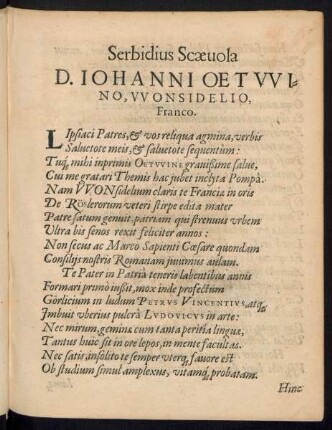 Serbidius Scævola
D. IOHANNI OETVVI-
NO, VVONSIDELIO,
Franco.
LIpsiaci Patres, & vos reliqua agmina, verbis
Saluetote meis, & saluetote sequentum:
Tuq́; mihi inprimis OETVVINE grauissime salue,
Cui me gratari Themis hac jubet inclyta Pompâ.
Nam VVONsidelum claris te Francia in oris
De Röslerorum veteri stirpe edita mater
Patre satum genuit, patriam qui strenuus vrbem
Vltra bis senos rexit feliciter annos:
Non secus ac Marco Sapienti Cæsare quondam
Consilijs nostris Romanam juuimus aulam.
Te Pater in Patriâ teneris labentibus annis
Formari primò jußit, mox inde profectum
Görlicium in ludum PETRVS VINCENTIVS, atq;
Imbuit vberius pulcrâ LVDOVICVS in arte:
Nec mirum, gemina cum tanta peritia linguæ,
Tantus huic sit in ore lepos, in mente facultas.
Nec satis, insolito te semper vterq; fauore est
Ob studium simul amplexus, vitamq́; probatam.
Hinc